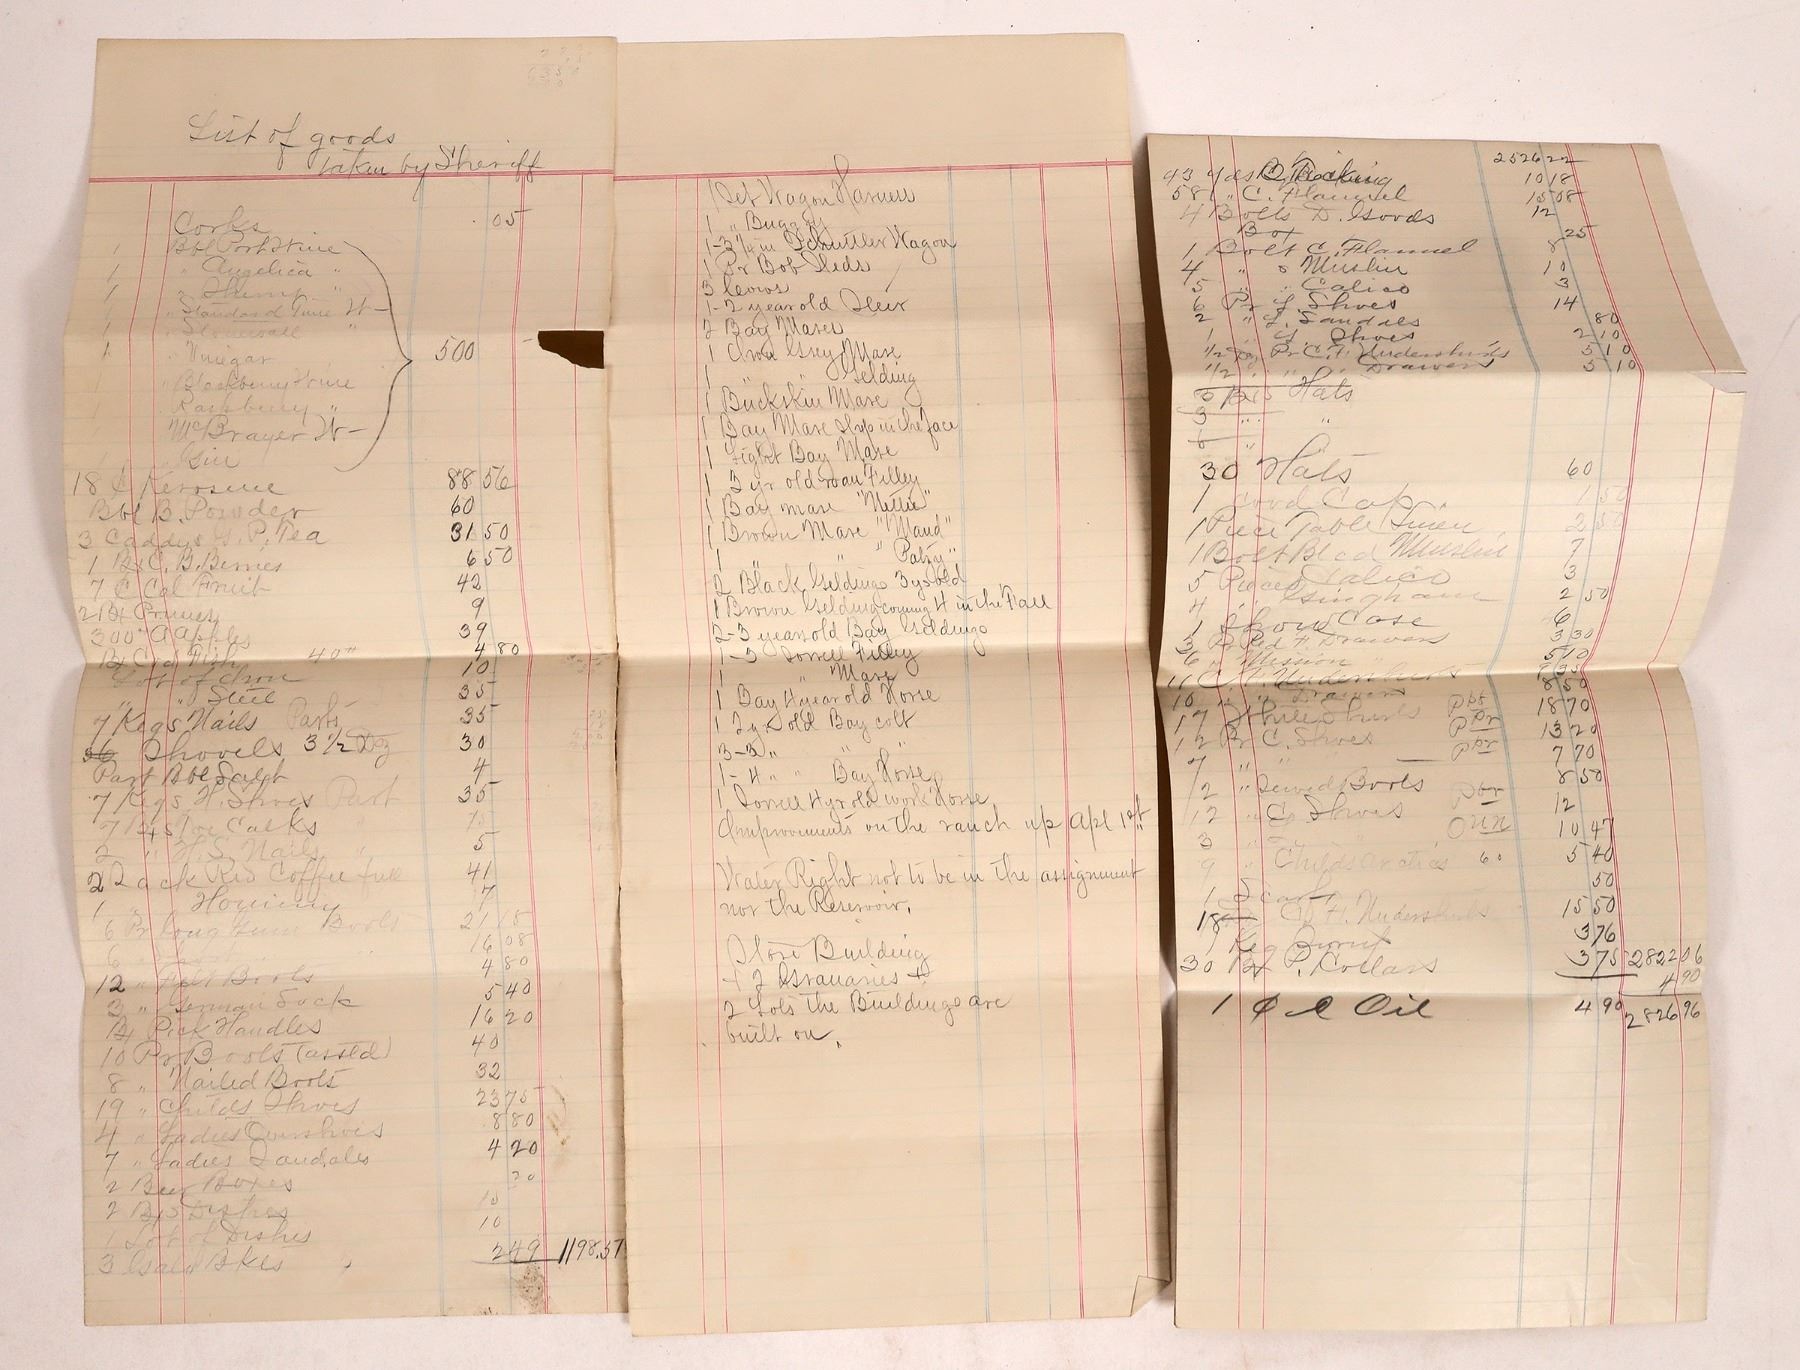 List of goods
taken by Sheriff
Corks .05
1 Bbl Port Wine
1 " Angelica "
1 "
1 " Standard
1 " Stonewall "
1 " Vinegar 500
" Blackberry Wine
Raspberry "
McBrayer W
Gin
18 C Kerosene 88 56
Bbl B. Powder 60
3 Caddys G. P. Tea 31 50
1 Bx C. B. Berries 6 50
7 C Cal Fruit 42
2 Bx Prunes 9
300# Apples 39
Bx Cod Fish 40# 4 80
Lot of Iron 10
" " Steel 35
7 Kegs Nails Parts 35
Shovels 3 1/2 Doz 30
Part Bbl Salt 4
7 Kegs H. Shoes Part 35
7 Bxs Toe Calks 75
2 " H. S. Nails " 5
2 Sack Rio Coffee full 41
1 " Hominy 7
6 Pr Long Gum Boots 21 15
6 16 08
12 " Felt Boots 4 80
3 " German Sock 5 40
Bx Pick Handles 16 20
10 Pr Boots (asstd) 40
8 " Nailed Boots 32
19 " Childs Shoes 23 75
4 " Ladies Overshoes 8 80
7 " Ladies Sandales 4 20
2 Beer Boxes 20
2 Bxs Dishes 10
1 Lot of Dishes 10
3 2 49 1198.57
1 Set Wagon Harness
1 " Buggy
1-3 1/4 in Schuttler Wagon
1 Pr Bob Sleds
3 Cows
1-2 year old Steer
2 Bay Mares
1 Iron Grey Mare
1 " " Gelding
1 Buckskin Mare
1 Bay Mare Strip in the face
1 Light Bay Mare
1 3 yr old roan Filley
1 Bay mare "Nettie"
1 Brown Mare "Maud"
1 " " "Patsy"
2 Black Geldings 3 ys old
1 Brown Gelding coming 4 in the Fall
2-3 year old Bay Geldings
1-3 Sorrell Filley
1 " Mare
1 Bay 4 year old Horse
1 2 yr old Bay colt
3-3 " "
1-4 " " Bay Horse
1 Sorrell 4 yr old work Horse
Improvements on the ranch up Apl 1st
Water Right not to be in the assignment
nor the Reservoir.
Store Building
+ 2 Granaries +
2 Lots the Buildings are
built on.
2526 22
43 yds B. Ticking 10 18
58 1 " C. Flannel 15 08
4 Bolts D. Goods 12
Box 25
1 Bolt C. Flannel 8
4 " " Muslin 10
5 " " Calico 3
6 Pr L. Shoes 14
2 " L. Sandals 80
1 " Shoes 2 10
1/2 Doz Pr C. F. Undershirts 5 10
1/2 " " " " Drawers 5 10
3 Bxs Hats
3 " "
6 "
30 Hats 60
1 Cord Cap 1 50
1 Piece Table Linen 2 50
1 Bolt Blcd Muslin 7
5 Pieces Calico 3
4 " Gingham 2 50
1 Show Case 6
3 Pr Red F. Drawers 3 30
6 " Mission " 5 10
11 C. F. Undershirts 9 35
10 " " Drawers 8 50
17 White Shirts 18 70
12 Pr C. Shoes 13 20
7 " " 7 70
2 " Sewed Boots 8 50
12 " C. Shoes 12
3 " " " 10 47
9 " Childs Arctics 60 5 40
1 Scarf 50
18 C. F. Undershirts 15 50
1 Keg 3 76
30 Bx P. Collars 3 75 2822 06
4 90
1 Oil 4 90 2826 96